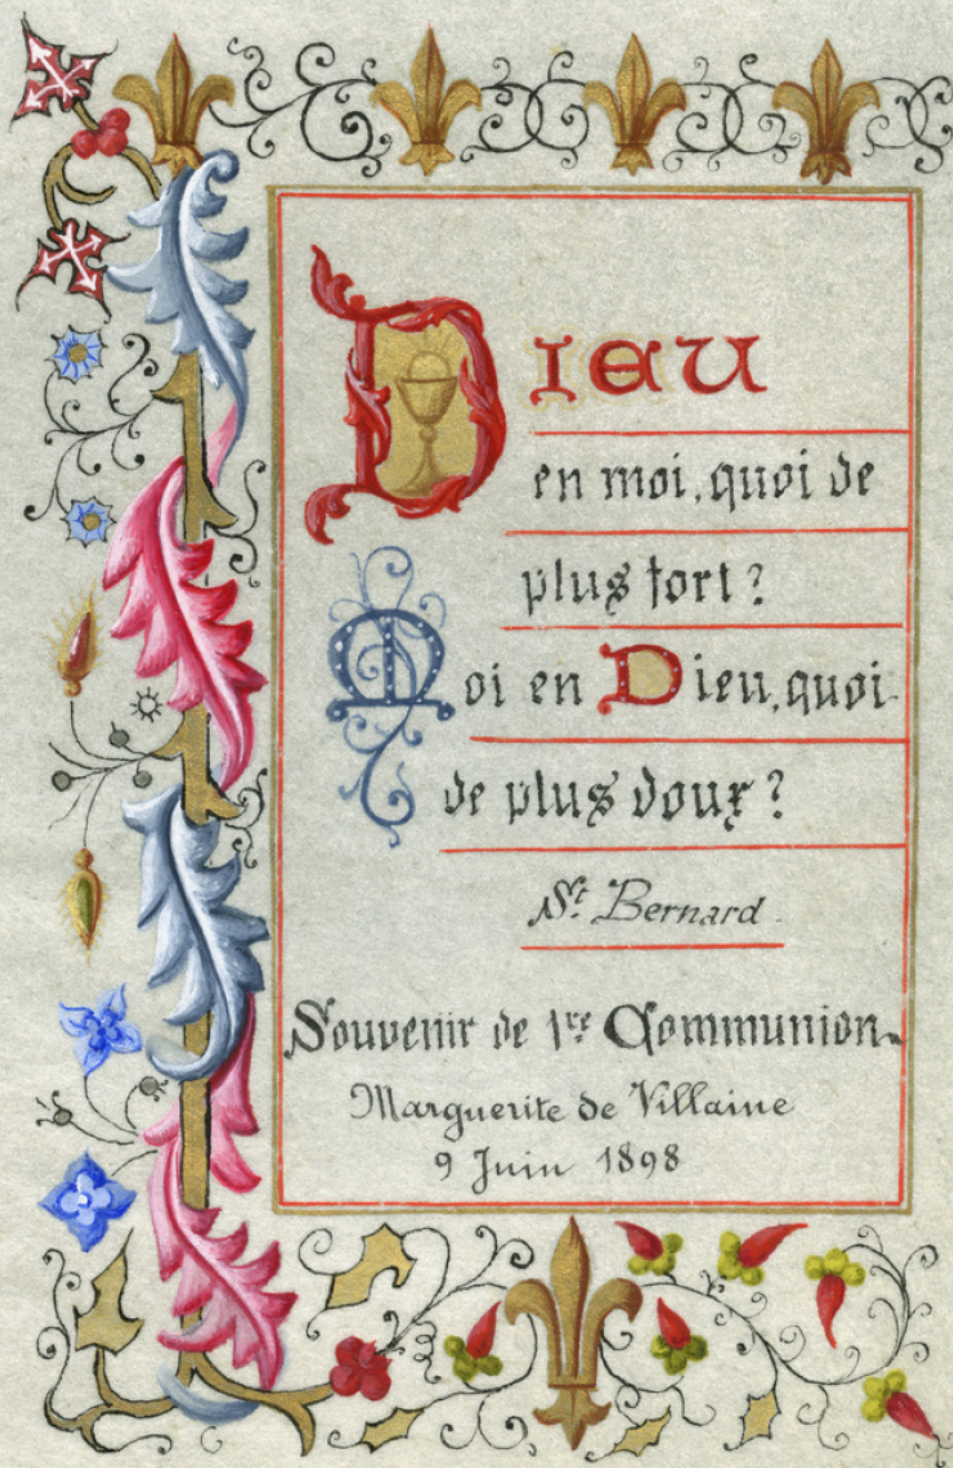 Dieu
en moi, quoi de
plus fort ?
Moi en Dieu, quoi
de plus doux ?
St. Bernard
Souvenir de 1re Communion.
Marguerite de Villaine
9 Juin 1898